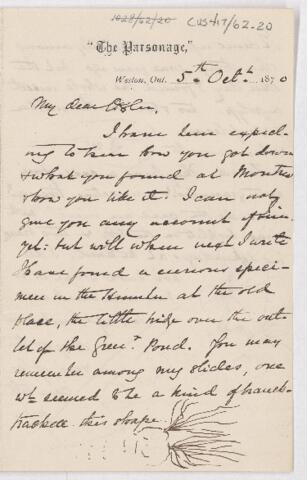 1028/62/20
CUS417/62.20
"The Parsonage,"
Weston, Ont. 5th Octr. 1870
My dear Osler,
I have been expect-
ing to hear how you got down
& what you found at Montreal
& how you like it. I can not
give you any account of mine
yet: but will when next I write
I have found a curious speci-
men in the Humber at the old
place, the little bridge over the out-
let of the Green Pond. You may
remember among my slides, one
wh. seemed to be a kind of branch-
this shape